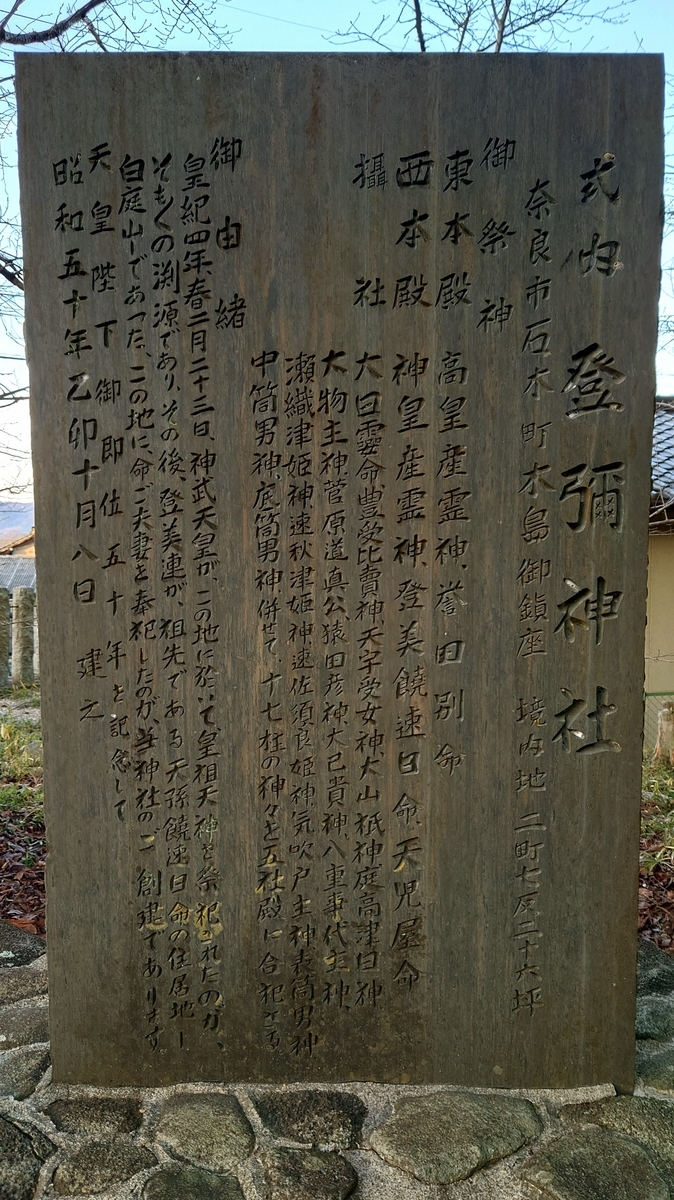 式内 登彌神社
奈良市石木町木島御鎮座 境内地 二町七反二十六坪
御祭神
東本殿 高皇産霊神、誉田別命
西本殿 神皇産霊神、登美饒速日命、天児屋命
攝社 大日孁命、豊受比賣神、天宇受女神、大山祇神、庭高津日神
大物主神、菅原道真公、猿田彦神、大己貴神、八重事代主神、
瀬織津姫神、速秋津姫神、速佐須良姫神、気吹戸主神、表筒男神
中筒男神、底筒男神、併せて、十七柱の神々を五社殿に合祀さる
御由緒
皇紀四年、春二月二十三日、神武天皇が、この地に於いて皇祖天神を祭祀されたのが、
そもそもの渕源であり、その後、登美連が、祖先である天孫饒速日命の住居地ー
白庭山ーであった、この地に、命ご夫妻を奉祀したのが、当神社のご創建であります
天皇陛下御即位五十年を記念して
昭和五十年乙卯十月八日 建之